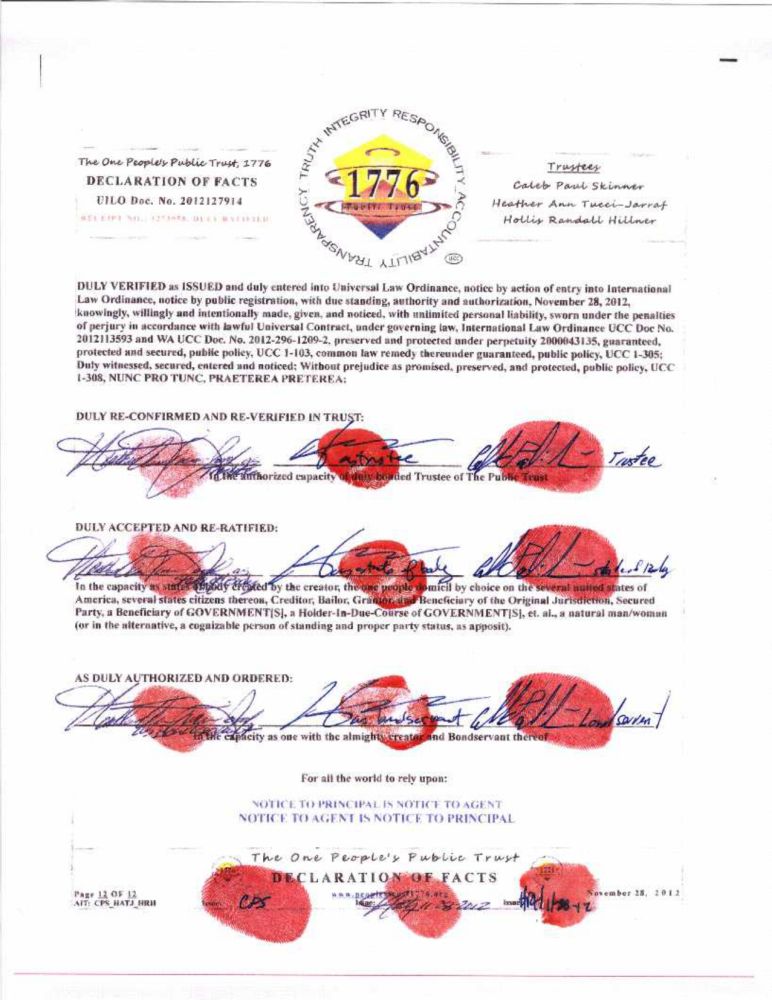 TRANSPARENCY TRUTH INTEGRITY RESPONSIBILITY ACCOUNTABILITY
1776
The One People's Public Trust, 1776
DECLARATION OF FACTS
UILO Doc. No. 2012127914
Trustees
Caleb Paul Skinner
Heather Ann Tucci-Jarraf
Hollis Randall Hillner
DULY VERIFIED as ISSUED and duly entered into Universal Law Ordinance, notice by action of entry into International
Law Ordinance, notice by public registration, with due standing, authority and authorization, November 28, 2012,
knowingly, willingly and intentionally made, given, and noticed, with unlimited personal liability, sworn under the penalties
of perjury in accordance with lawful Universal Contract, under governing law, International Law Ordinance UCC Doc No.
2012113593 and WA UCC Doc. No. 2012-296-1209-2, preserved and protected under perpetuity 2000043135, guaranteed,
protected and secured, public policy, UCC 1-103, common law remedy thereunder guaranteed, public policy, UCC 1-305;
Duly witnessed, secured, entered and noticed; Without prejudice as promised, preserved, and protected, public policy, UCC
1-308, NUNC PRO TUNC, PRAETEREA PRETEREA:
DULY RE-CONFIRMED AND RE-VERIFIED IN TRUST:
as trustee
Trustee
In the authorized capacity of duly bonded Trustee of The Public Trust
DULY ACCEPTED AND RE-RATIFIED:
as state of body
In the capacity as states of body created by the creator, the one people domicil by choice on the several united states of
America, several states citizens thereon, Creditor, Bailor, Grantor, and Beneficiary of the Original Jurisdiction, Secured
Party, a Beneficiary of GOVERNMENT[S], a Holder-In-Due-Course of GOVERNMENT[S], et. al., a natural man/woman
(or in the alternative, a cognizable person of standing and proper party status, as apposit).
AS DULY AUTHORIZED AND ORDERED:
as bondservant
In the capacity as one with the almighty creator and Bondservant thereof
For all the world to rely upon:
NOTICE TO PRINCIPAL IS NOTICE TO AGENT
NOTICE TO AGENT IS NOTICE TO PRINCIPAL
The One People's Public Trust
DECLARATION OF FACTS
Page 12 OF 12
AIT: CPS_HATJ_HRH
CPS
11-28-2012
November 28, 2012